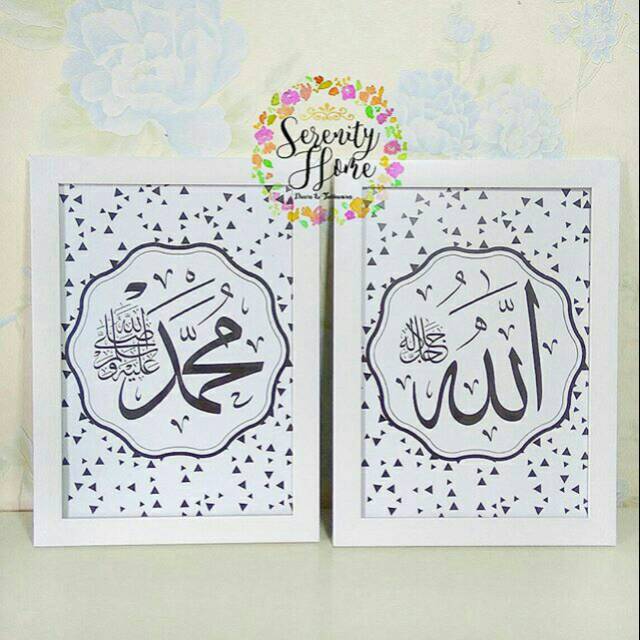 Serenity
Home
محمد
صلى الله عليه وسلم
الله
جل جلاله